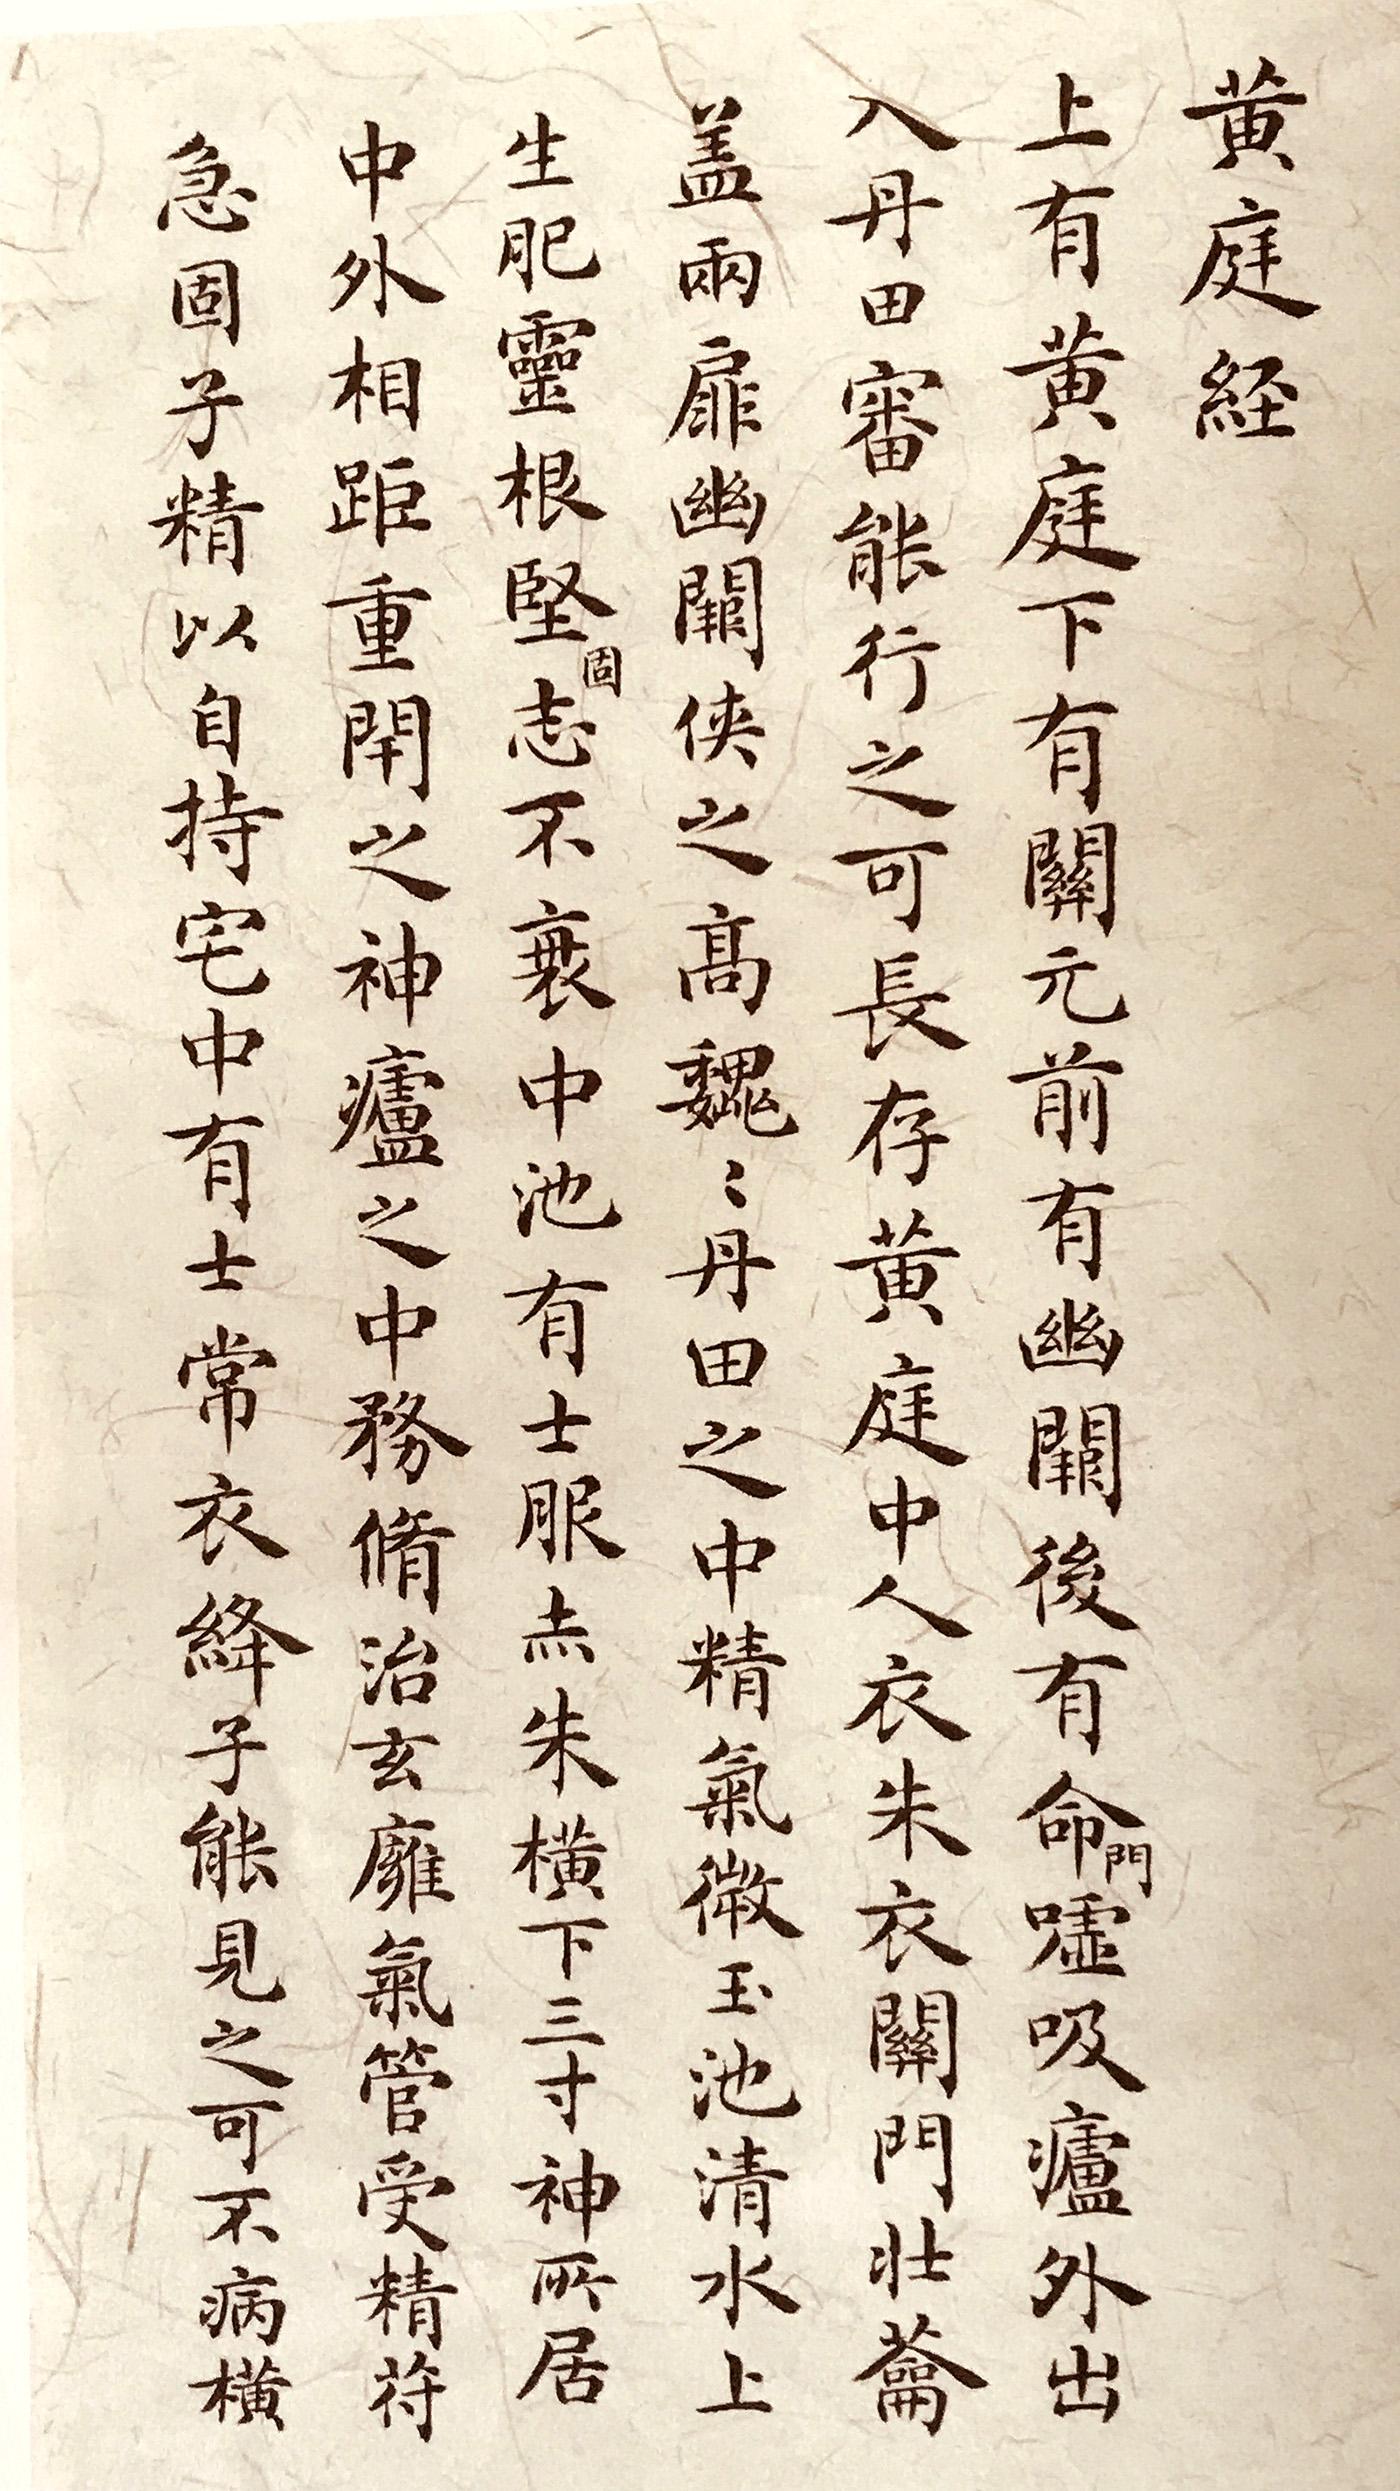 黄庭経
上有黄庭下有關元前有幽闕後有命門嘘吸廬外出
入丹田審能行之可長存黄庭中人衣朱衣關門壯蘥
盖兩扉幽闕侠之高魏〻丹田之中精氣微玉池清水上
生肥靈根堅固志不衰中池有士服赤朱横下三寸神所居
中外相距重閇之神廬之中務脩治玄廱氣管受精苻
急固子精以自持宅中有士常衣絳子能見之可不病横